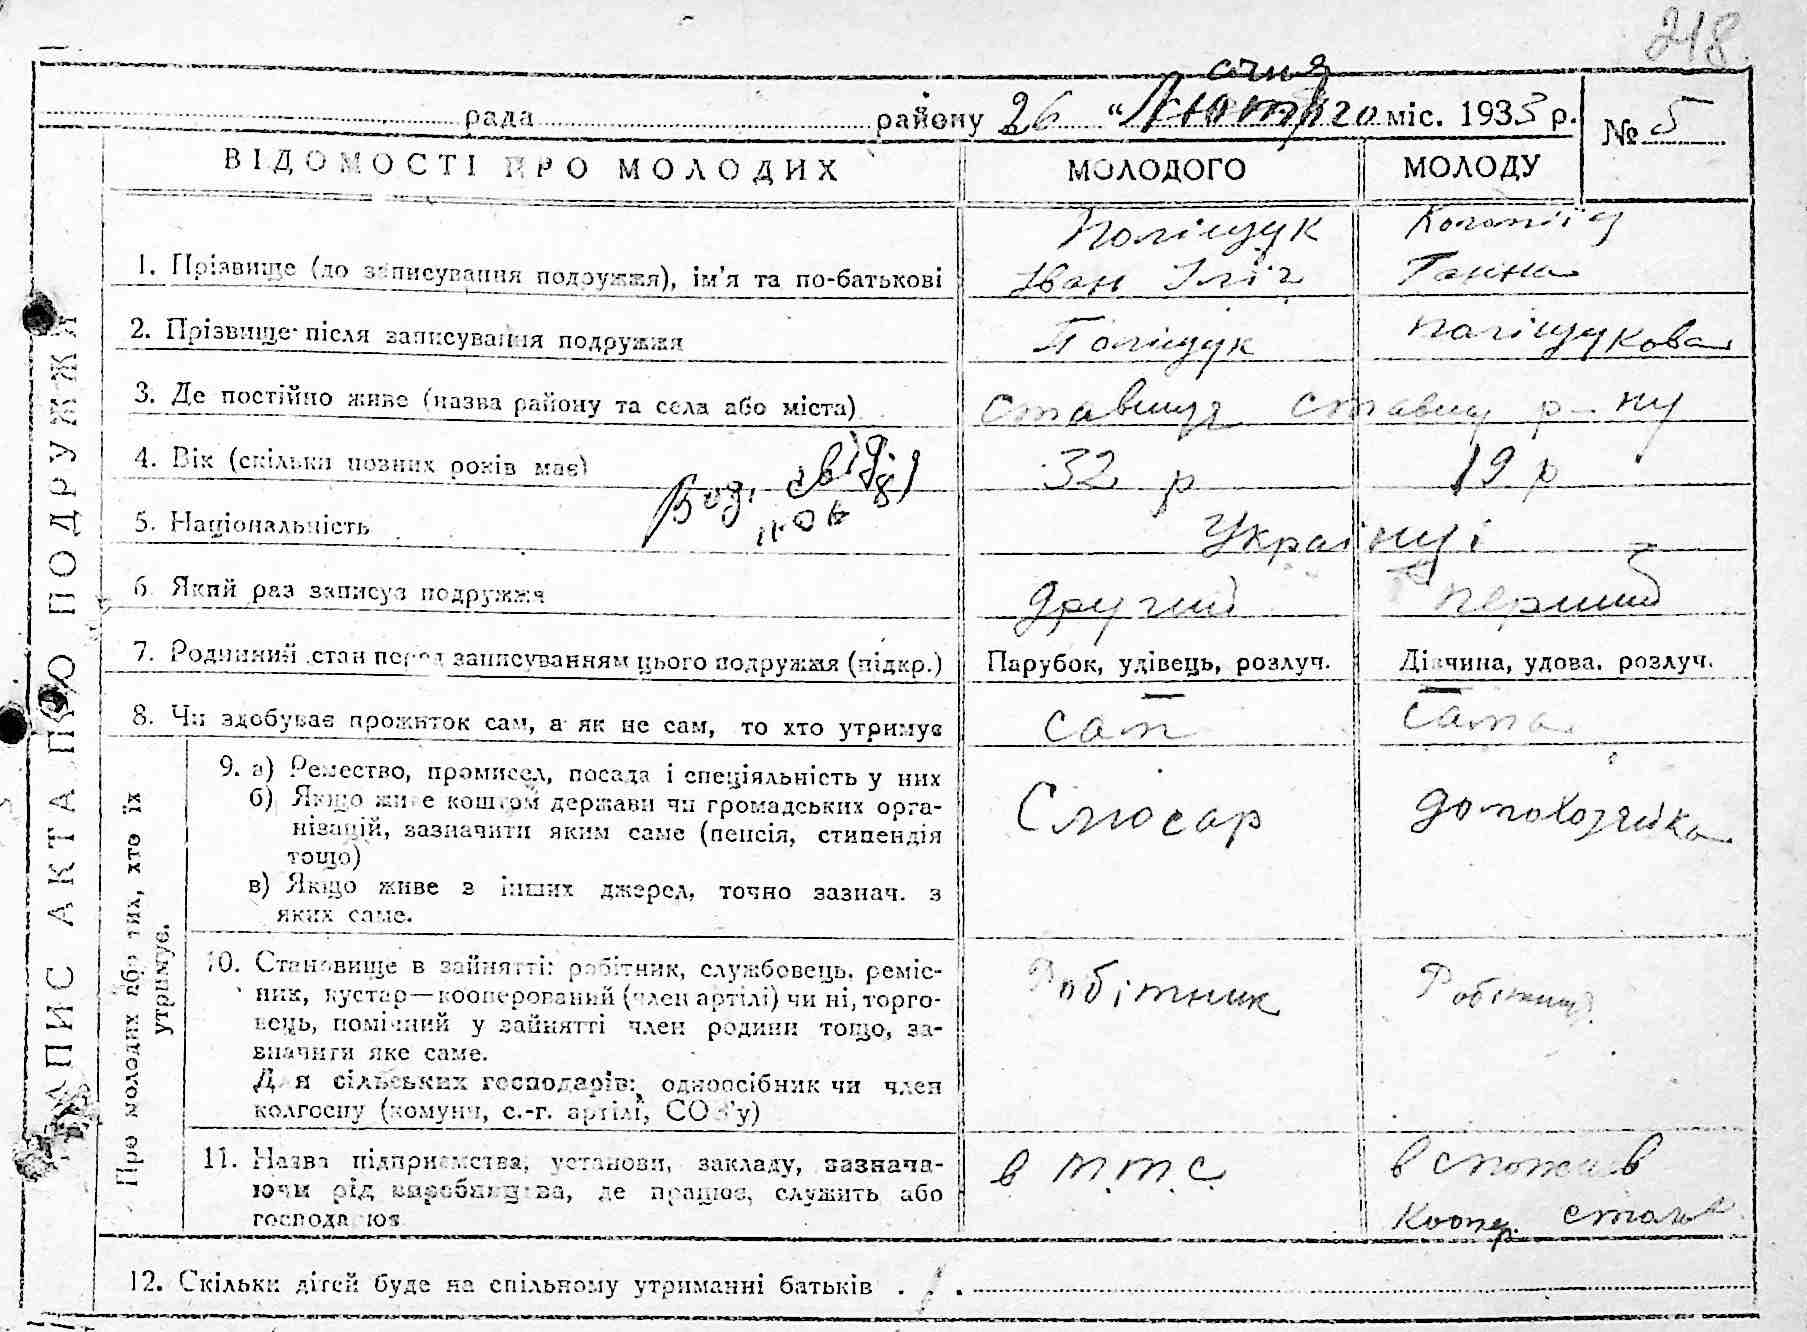 218
січня
рада районy 26 "Лютого міс. 1933 р. № 5
ВІДОМОСТІ ПРО МОЛОДИХ МОЛОДОГО МОЛОДУ
Поліщук
1. Прізвище (до записування подружжя), ім'я та по-батькові Іван Ілліч Ганна
2. Прізвище після записування подружжя Поліщук Поліщукова
3. Де постійно живе (назва району та села або міста) Ставище Ставищ р-ну
4. Вік (скільки повних років має) 32 р 19 р
5. Національність Українці
6. Який раз записує подружжя другий перший
7. Родинний стан перед записуванням цього подружжя (підкр.) Парубок, удівець, розлуч. Дівчина, удова, розлуч.
8. Чи здобуває прожиток сам, а як не сам, то хто утримує сам сама
9. а) Ремество, промисел, посада і спеціяльність у них
б) Якщо живе коштом держави чи громадських орга-
нізацій, зазначити яким саме (пенсія, стипендія
тощо)
в) Якщо живе з інших джерел, точно зазнач. з
яких саме.
Слюсар домохозяйка
10. Становище в зайнятті: робітник, службовець, реміс-
ник, кустар—кооперований (член артілі) чи ні, торго-
вець, помічний у зайнятті член родини тощо, за-
значити яке саме.
Для сільських господарів: одноосібник чи член
колгоспу (комуни, с.-г. артілі, СОЗ'у)
Робітник Робітниц.
11. Назва підприємства, установи, закладу, зазнача-
ючи рід виробництва, де працює, служить або
господарює
в М.Т.С. в
Кооп.
12. Скільки дітей буде на спільному утриманні батьків
ЗАПИС АКТА ПРО ПОДРУЖЖЯ
Про молодих або тих, хто їх
утримує.